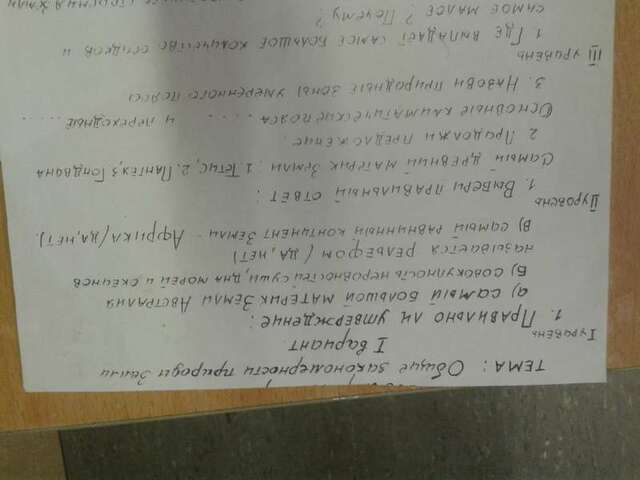 ТЕМА: Общие закономерности природы Земли
I вариант.
I уровень
1. Правильно ли утверждение:
а) самый большой материк Земли Австралия
б) совокупность неровностей суши, дна морей и океанов
называется рельефом (да, нет)
в) самый равнинный континент Земли - Африка (да, нет).
II уровень
1. Выбери правильный ответ:
Самый древний материк Земли: 1. Тетис, 2. Пангея, 3. Гондвана
2. Продолжи предложение.
Основные климатические пояса .... и переходные .....
3. Назови природные зоны умеренного пояса
III уровень
1. Где выпадает самое большое количество осадков и
самое малое? Почему?
строения Земли